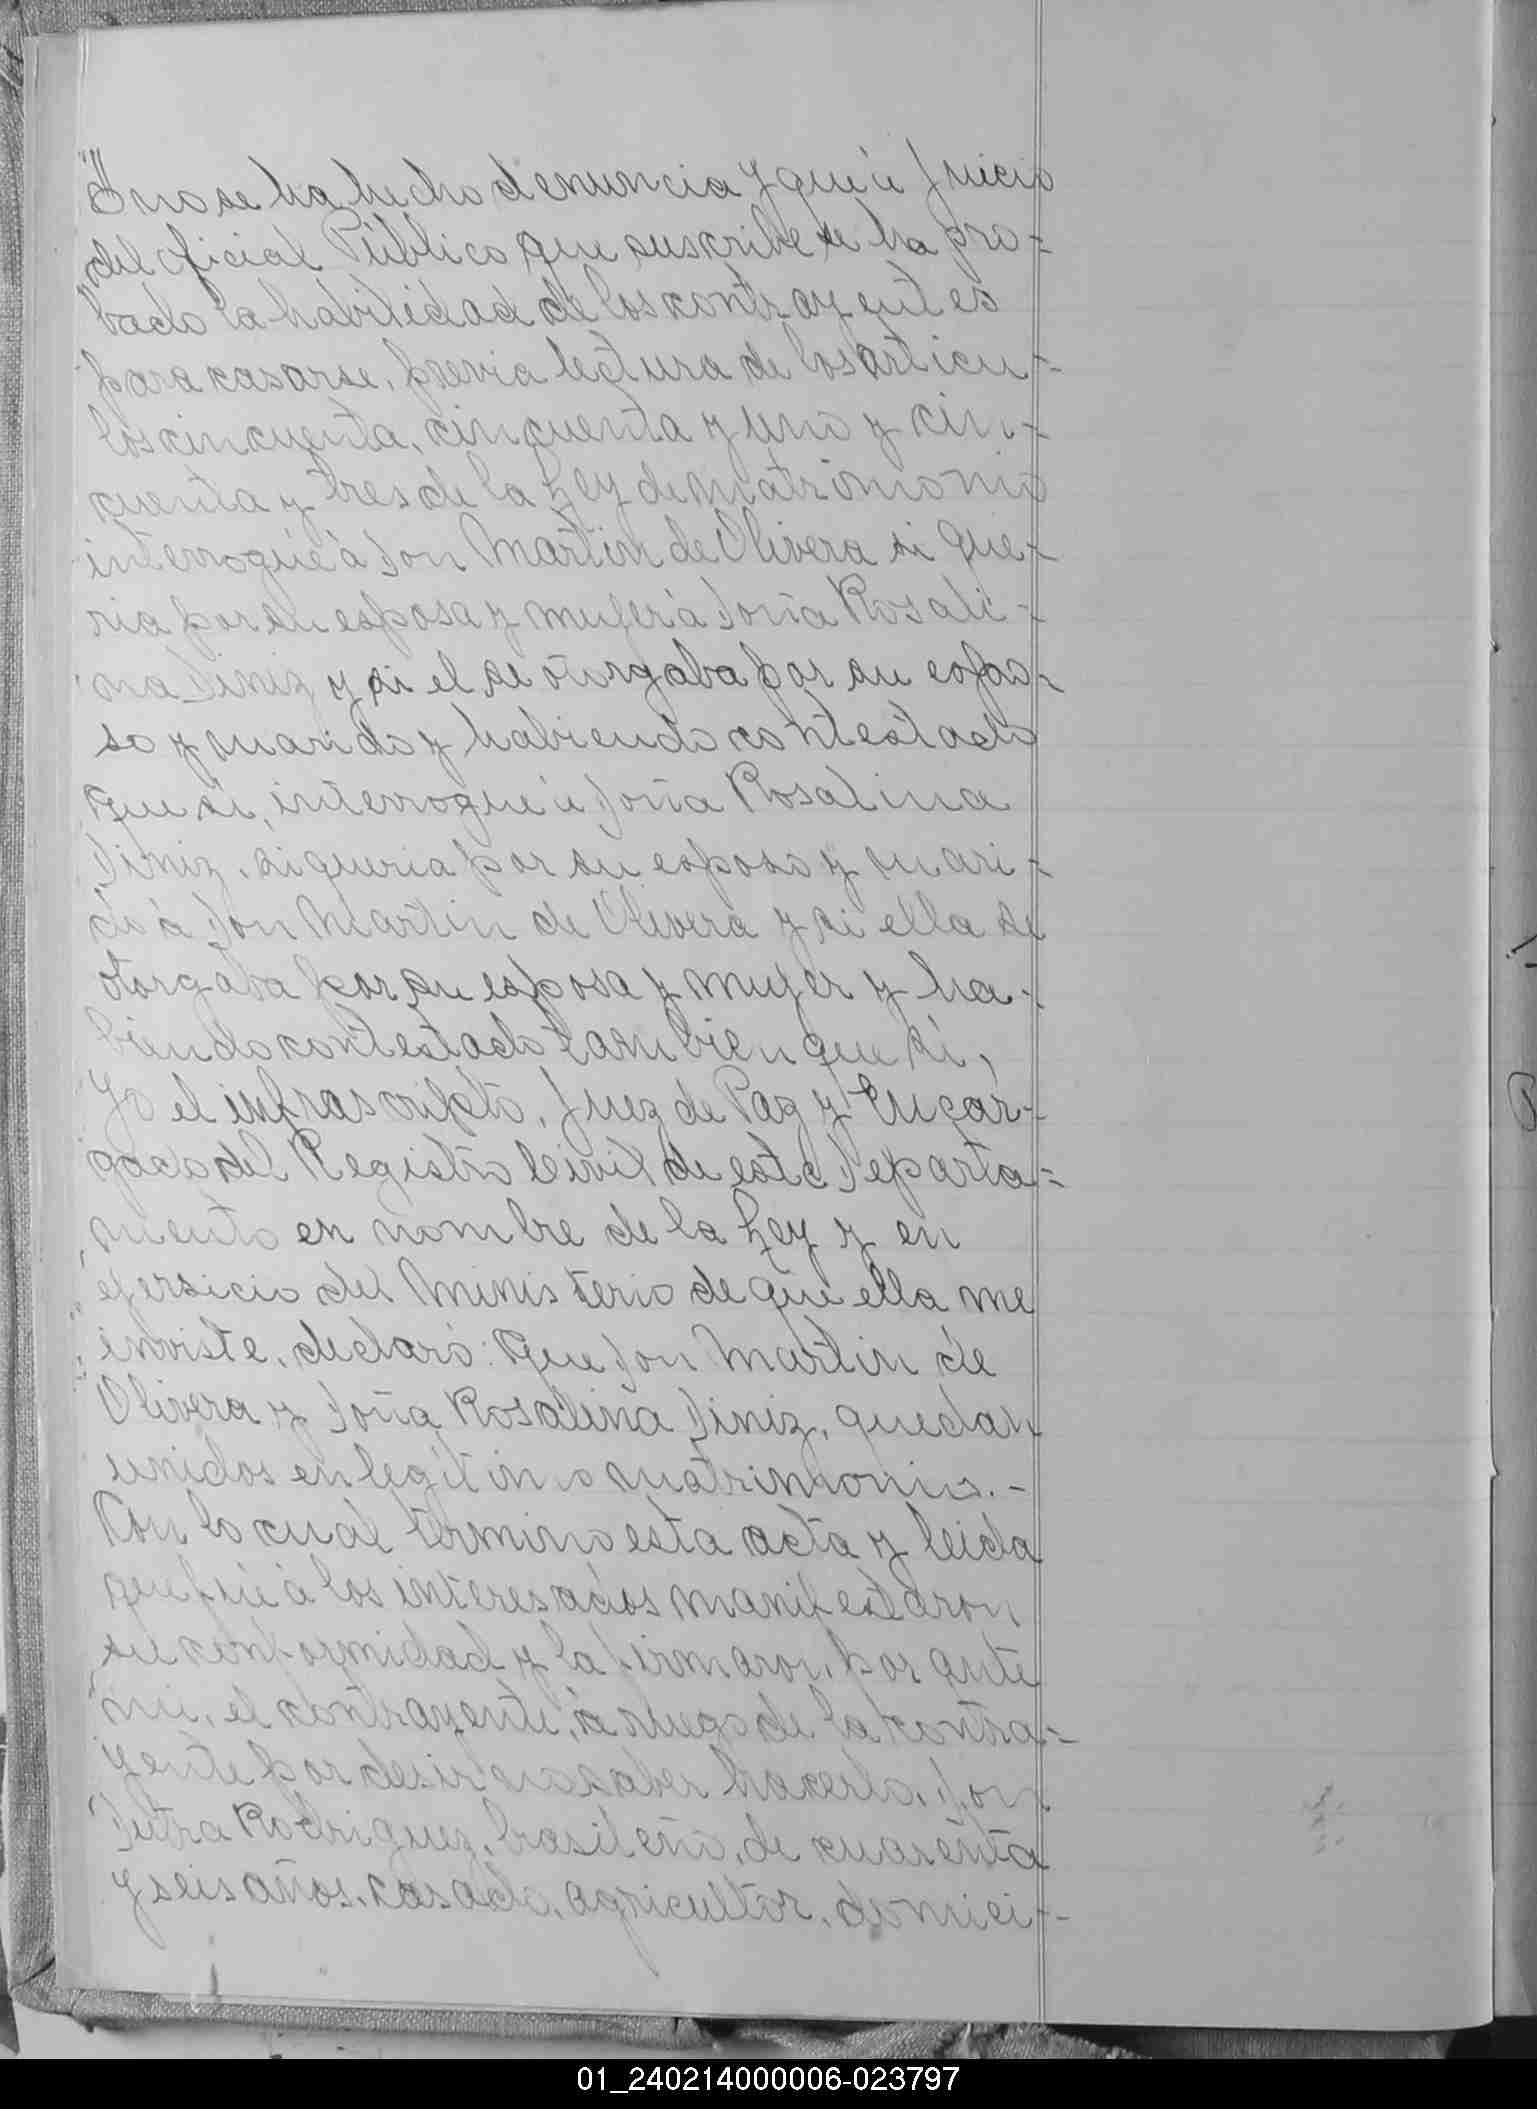 ó no se ha hecho denuncia y que á Juicio
del oficial Público que suscribe se ha pro=
bado la habilidad de los contrayentes
para casarse, previa lectura de los articu-
los cincuenta, cincuenta y uno y cin-
cuenta y tres de la Ley de matrimonio
interrogué á Don Martin de Olivera si que-
ria por su esposa y mujer á Doña Rosali-
na Diniz y si el se otorgaba por su espo-
so y marido y habiendo contestado
que si, interrogué á Doña Rosalina
Diniz, si queria por su esposo y mari-
do á Don Martin de Olivera y si ella se
otorgaba por su esposa y mujer y ha-
biendo contestado tambien que si,
Yo el infrascripto, Juez de Paz y Encar-
gado del Registro Civil de este Departa=
mento en nombre de la Ley y en
ejersicio del Ministerio de que ella me
inviste, declaró: Que Don Martin de
Olivera y Doña Rosalina Diniz, quedan
unidos en legítimo matrimonio.-
Con lo cual termino esta acta y leida
que fué á los interesados manifestaron
su conformidad y la firmaron, por ante
mi, el contrayente, á ruego de la contra=
yente por desir no saber hacerlo, Don
Dutra Rodriguez, brasileño, de cuarenta
y seis años, casado, agricultor, domici-
01_240214000006-023797